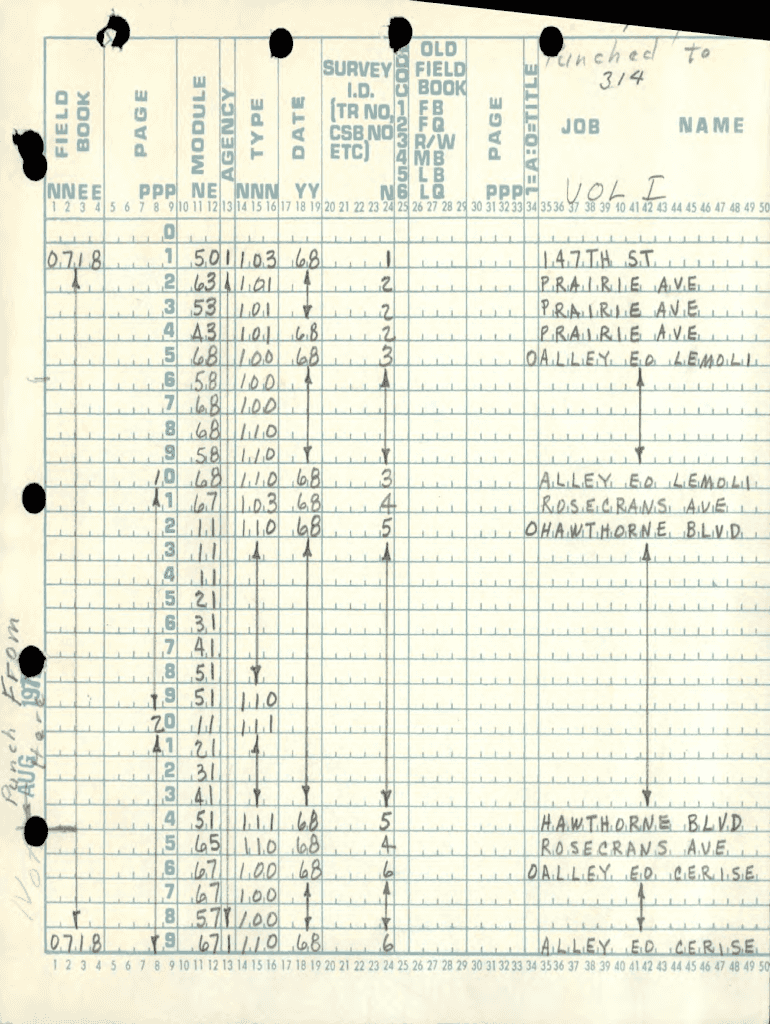 Punched to
314
FIELD BOOK NNEE
PAGE PPP
MODULE NE
AGENCY
TYPE NNN
DATE YY
SURVEY I.D. (TR NO, CSB NO, ETC) N
CODE 1 2 3 4 5 6
OLD FIELD BOOK FB FQ R/W MB LB LQ
PAGE PPP
1=A:0=TITLE
JOB NAME
VOL I
1 2 3 4 5 6 7 8 9 10 11 12 13 14 15 16 17 18 19 20 21 22 23 24 25 26 27 28 29 30 31 32 33 34 35 36 37 38 39 40 41 42 43 44 45 46 47 48 49 50
0
0718 1 50 1 103 68 1 147TH ST
2 63 101 2 PRAIRIE AVE
3 53 101 2 PRAIRIE AVE
4 43 101 68 2 PRAIRIE AVE
5 68 100 68 3 0 ALLEY EO LEMOLI
6 58 100
7 68 100
8 68 110
9 58 110
10 68 110 68 3 ALLEY EO LEMOLI
1 67 103 68 4 ROSECRANS AVE
2 11 110 68 5 0 HAWTHORNE BLVD
3 11
4 11
5 21
6 31
7 41
8 51
9 51 110
20 11 111
1 21
2 31
3 41
4 51 111 68 5 HAWTHORNE BLVD
5 65 110 68 4 ROSECRANS AVE
6 67 100 68 6 0 ALLEY EO CERISE
7 67 100
8 57 100
0718 9 67 1 110 68 6 ALLEY EO CERISE
1 2 3 4 5 6 7 8 9 10 11 12 13 14 15 16 17 18 19 20 21 22 23 24 25 26 27 28 29 30 31 32 33 34 35 36 37 38 39 40 41 42 43 44 45 46 47 48 49 50
Punch From Here
AUG 197